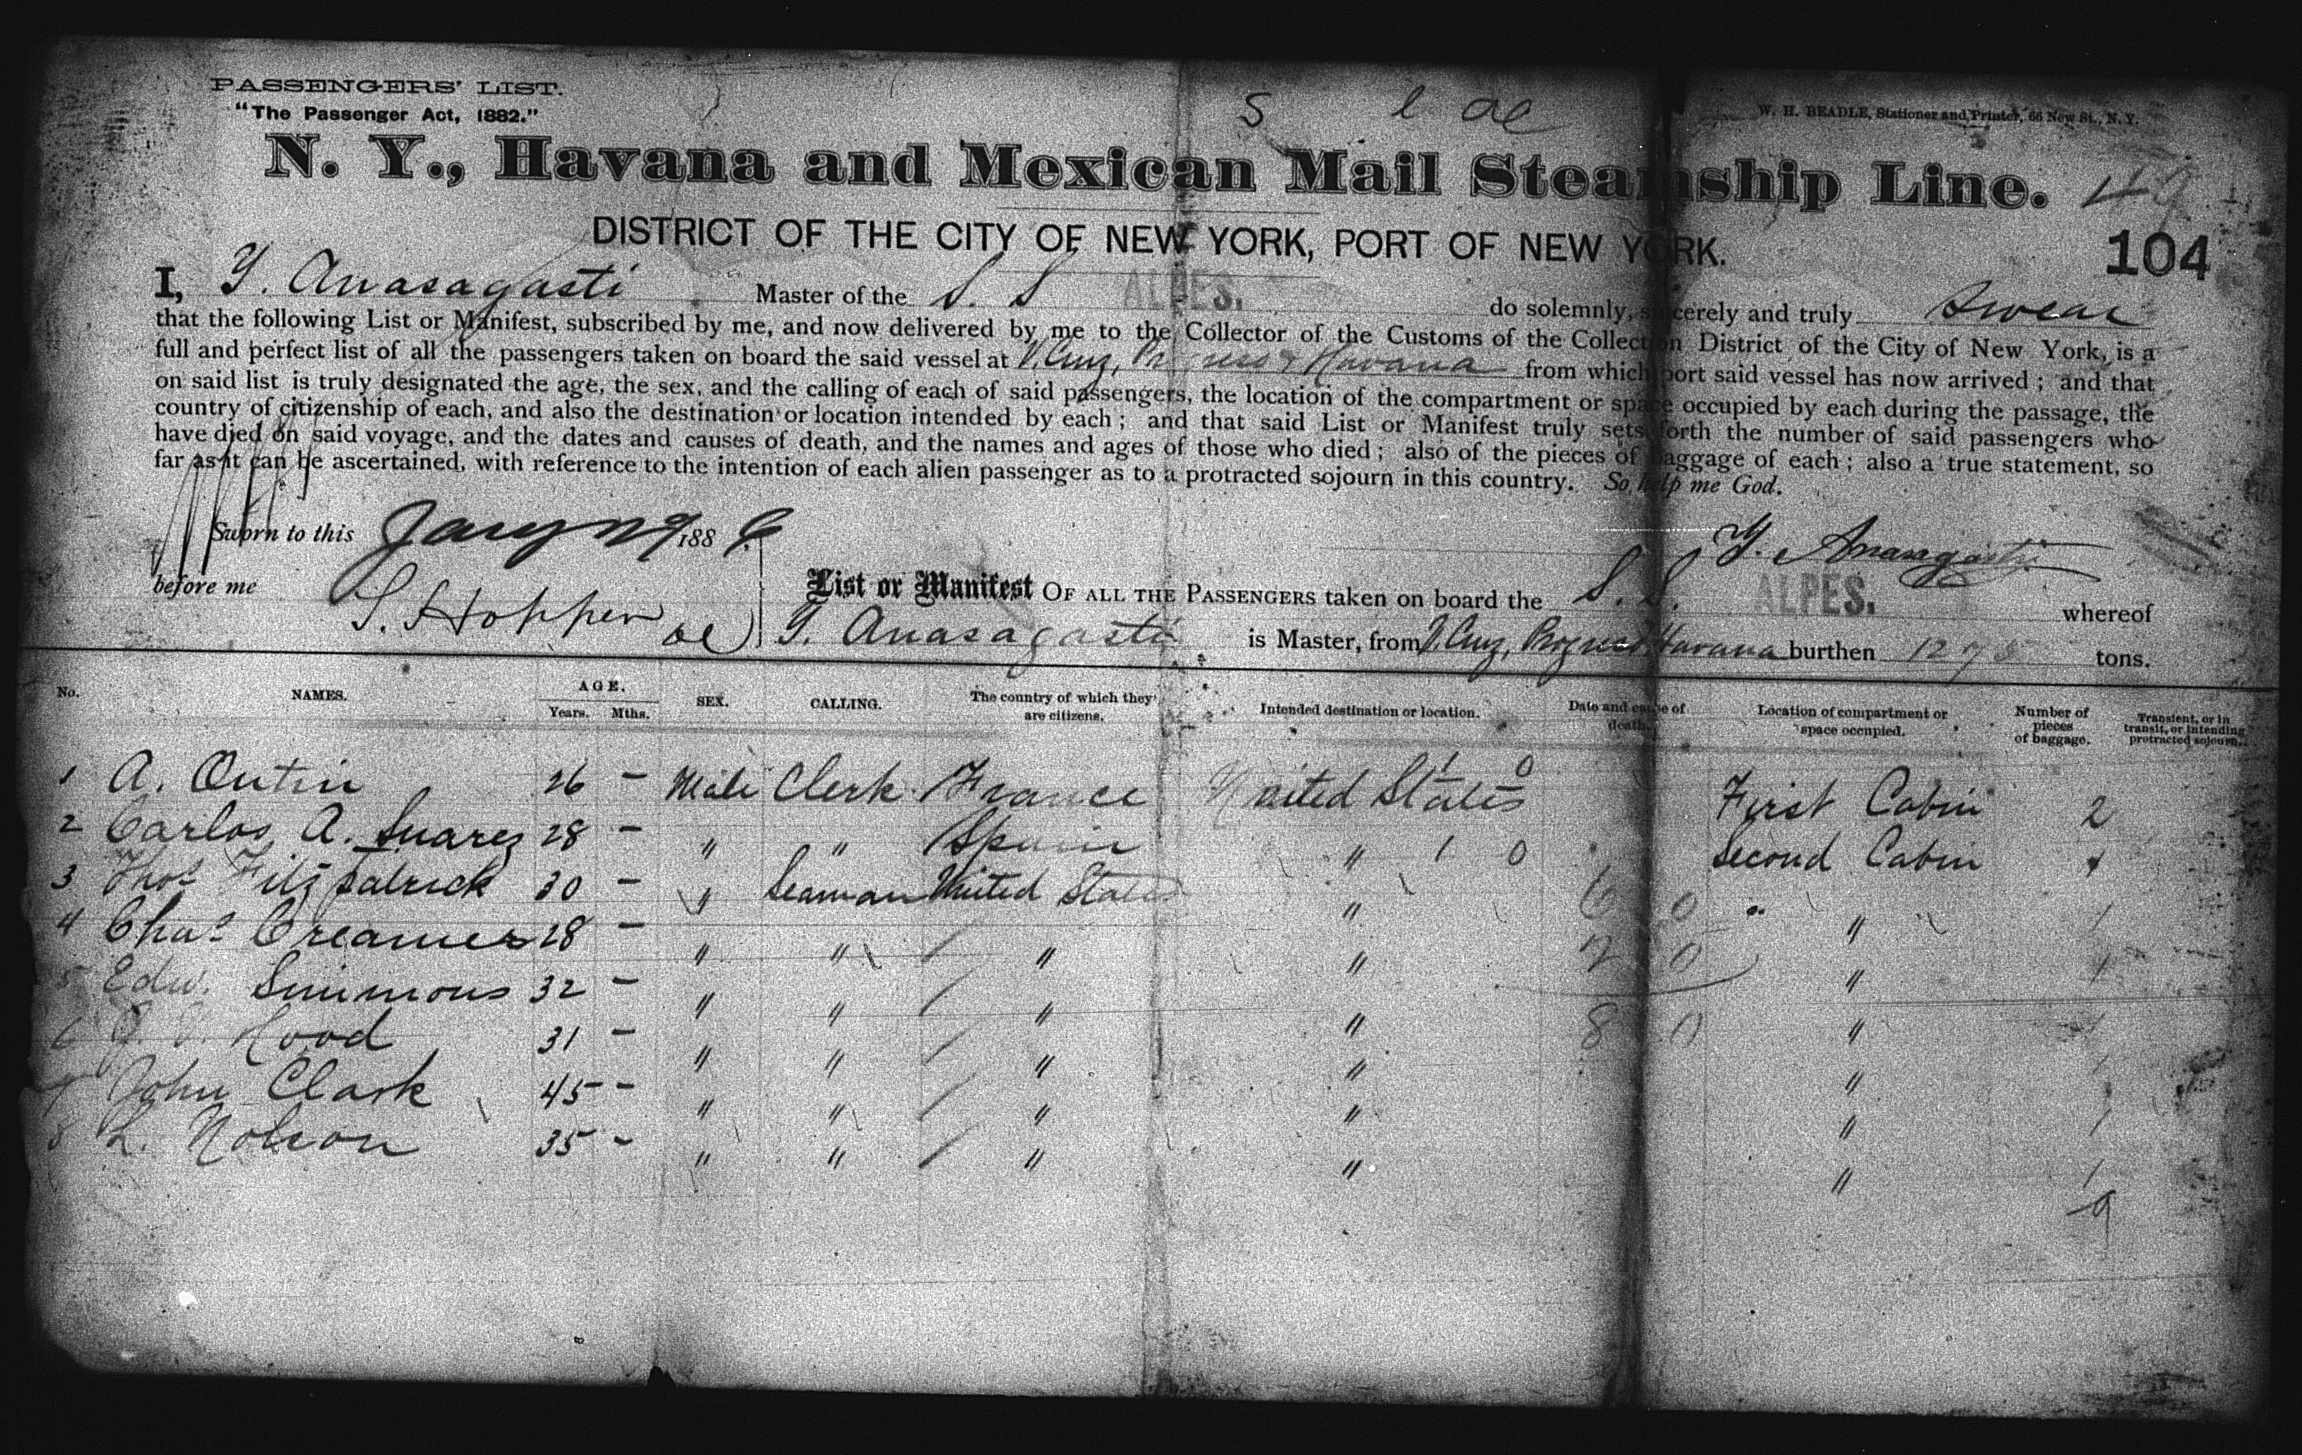 PASSENGERS' LIST.
"The Passenger Act, 1882."
W. H. BEADLE, Stationer and Printer, 66 New St., N. Y.
N. Y., Havana and Mexican Mail Steamship Line. 49
DISTRICT OF THE CITY OF NEW YORK, PORT OF NEW YORK. 104
I, Y. Anasagasti Master of the S. S ALPES. do solemnly, sincerely and truly Swear
that the following List or Manifest, subscribed by me, and now delivered by me to the Collector of the Customs of the Collection District of the City of New York, is a
full and perfect list of all the passengers taken on board the said vessel at V. Cruz, Progreso & Havana from which port said vessel has now arrived ; and that
on said list is truly designated the age, the sex, and the calling of each of said passengers, the location of the compartment or space occupied by each during the passage, the
country of citizenship of each, and also the destination or location intended by each ; and that said List or Manifest truly sets forth the number of said passengers who
have died on said voyage, and the dates and causes of death, and the names and ages of those who died ; also of the pieces of baggage of each ; also a true statement, so
far as it can be ascertained, with reference to the intention of each alien passenger as to a protracted sojourn in this country. So help me God.
Sworn to this Jany 29 1886 Y. Anasagasti
before me S. Hopper
List or Manifest OF ALL THE PASSENGERS taken on board the S. S. ALPES. whereof
Y. Anasagasti is Master, from V. Cruz, Progreso Havana burthen 1275 tons.
No. NAMES. AGE. Years. Mths. SEX. CALLING. The country of which they are citizens. Intended destination or location. Date and cause of death. Location of compartment or space occupied. Number of pieces of baggage. Transient, or in transit, or intending protracted sojourn.
1 A. Outin 26 – Male Clerk France United States First Cabin 2
2 Carlos A. Suarez 28 – " " Spain " 1 0 Second Cabin 1
3 Thos. Fitzpatrick 30 – " Seaman United States " 6 0 " 1
4 Chas. Creamer 28 – " " " " 7 0 " 1
5 Edw. Simmons 32 – " " " " 8 0 " 1
6 Hood 31 – " " " " " 1
7 John Clark 45 – " " " " " 1
8 L. Nolson 35 – " " " " " 1
9